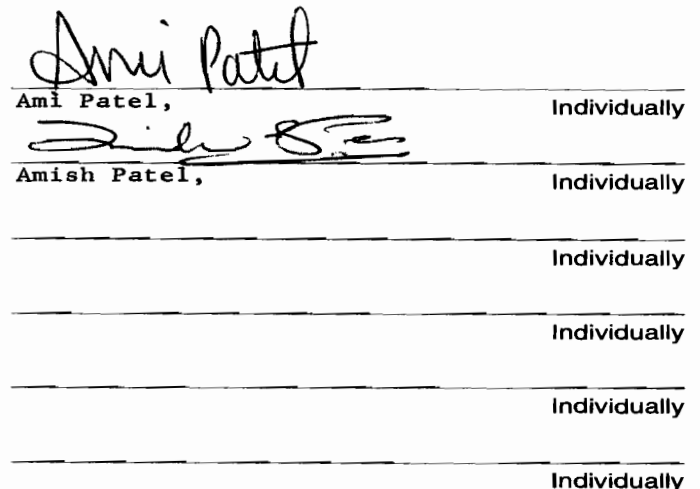 Ami Patel
Ami Patel, Individually
Amish Patel, Individually
Individually
Individually
Individually
Individually